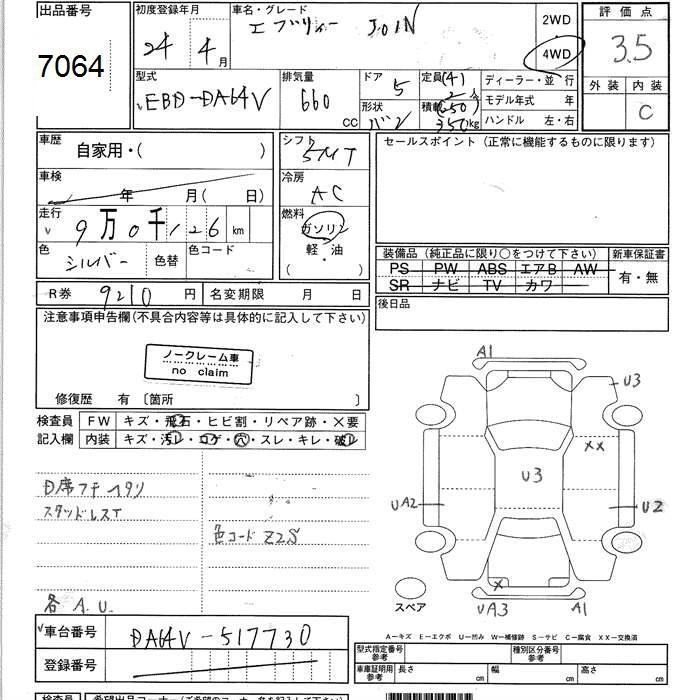 出品番号
7064
初度登録年月
24年 4月
車名・グレード
エブリィー JOIN
2WD
4WD
評価点
3.5
外装 内装
C
型式
EBD-DA64V
排気量
660 CC
ドア
5
形状
バン
定員(4)
2 人
積載(250)
350kg
ディーラー・並行
モデル年式 年
ハンドル 左・右
車歴
自家用・( )
シフト
5MT
セールスポイント(正常に機能するものに限ります)
車検
年 月( 日)
冷房
AC
走行
9万0千126 km
燃料
ガソリン
軽・油
( ・ )
色
シルバー
色替
色コード
装備品(純正品に限り〇をつけて下さい)
新車保証書
PS PW ABS エアB AW
SR ナビ TV カワ
有・無
R券 9210 円
名変期限 月 日
後日品
注意事項申告欄(不具合内容等は具体的に記入して下さい)
ノークレーム車
no claim
修復歴 有〔箇所 〕
検査員
記入欄
FW キズ・飛石・ヒビ割・リペア跡・×要
内装 キズ・汚レ・コゲ・穴・スレ・キレ・破レ
D席フチヘタリ
スタッドレスT
色コード Z2S
各 A.U
A1
U3
XX
U3
UA2
U2
X
UA3
A1
スペア
A-キズ E-エクボ U-凹み W-補修跡 S-サビ C-腐食 XX-交換済
車台番号
DA64V-517730
登録番号
型式指定番号
参考
種別区分番号
参考
車庫証明用
参考
長さ cm 幅 cm 高さ cm
検査員
希望出品コーナー(ご希望のコーナー名を記入して下さい)